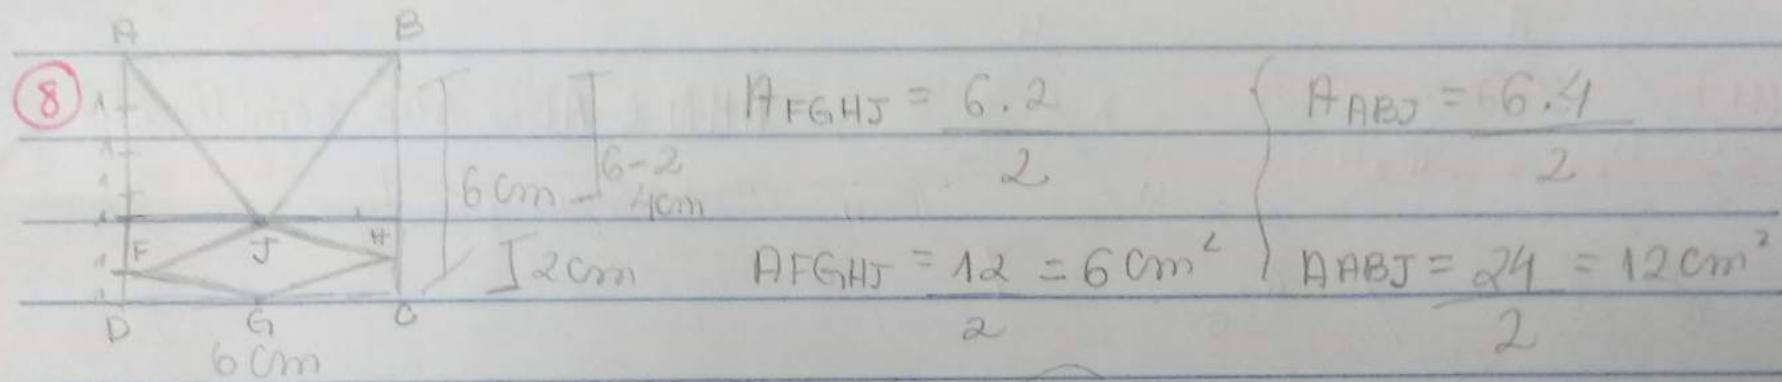 A B
8
1
1
1
1
1
1
F J H
D G C
6 cm
6 cm
6-2
4cm
2cm
A FGHJ = 6.2
2
A FGHJ = 12 = 6 cm²
2
A ABJ = 6.4
2
A ABJ = 24 = 12 cm²
2